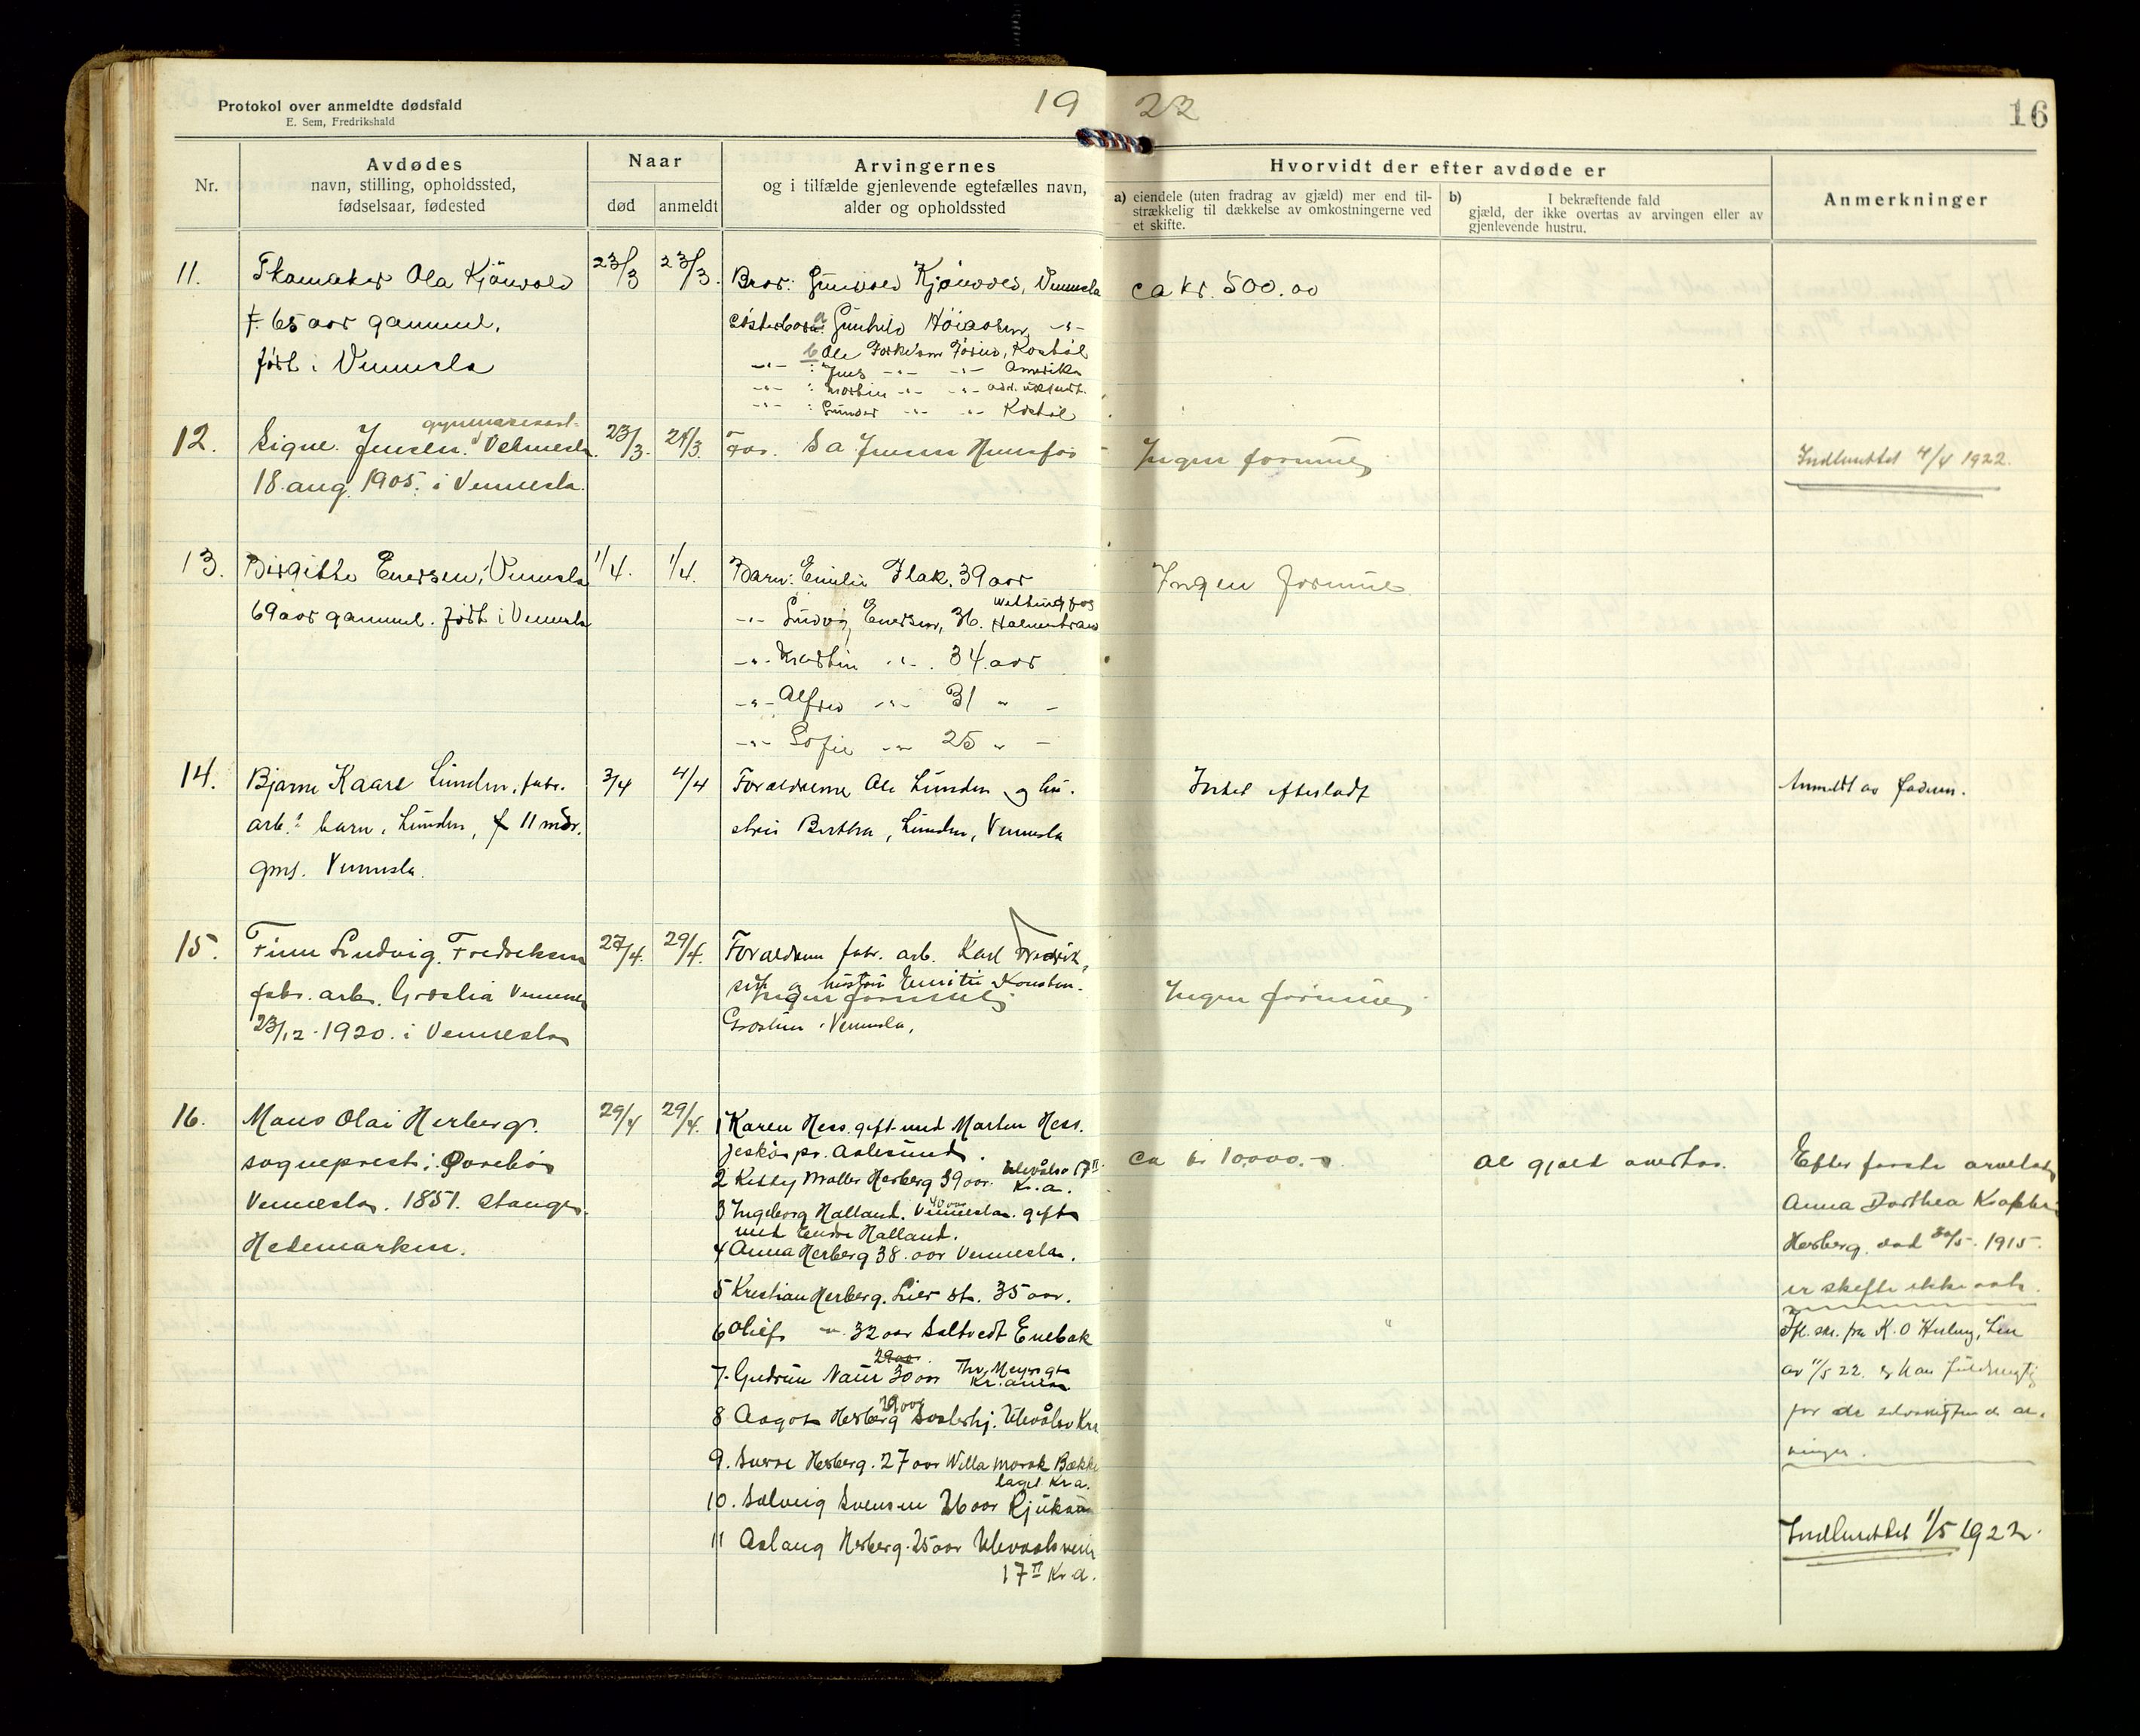 Protokol over anmeldte dødsfald
E. Sem, Fredrikshald
19 22
16
Nr.
Avdødes
navn, stilling, opholdssted,
fødselsaar, fødested
Naar
død
anmeldt
Arvingernes
og i tilfælde gjenlevende egtefælles navn,
alder og opholdssted
Hvorvidt der efter avdøde er
a) eiendele (uten fradrag av gjæld) mer end til-
strækkelig til dækkelse av omkostningerne ved
et skifte.
b) I bekræftende fald
gjæld, der ikke overtas av arvingen eller av
gjenlevende hustru.
Anmerkninger
11.
Skomaker Ola Kjönvold
f. 65 aar gammel,
født i Vennesla
23/3
23/3.
Bror: Gunvold Kjönvold, Vennesla
Søsterbarn: a Gunhild
b Ole
Amerika
: Jens -"- -"-
: Martin -"- -"- adr. ukjendt.
: Gunder -"- -"-
ca kr. 500.00
12.
Signe Jensen. Vennesla.
18. aug. 1905. i Vennesla.
23/3.
24/3.
Far. S A Jensen Hunsfos
Ingen formue
Indberettet 4/4 1922.
13.
Birgitte Enersen, Vennesla
69 aar gammel. født i Vennesla
1/4.
1/4.
Barn: Emilie Flak. 39 aar
Wittingfos
-"- Ludvig Enersen, 36. Holmestrand
-"- Martin -"-. 34. aar
-"- Alfred -"- 31 " -
-"- Sofie -"- 25 " -
Ingen formue
14.
Bjarne Kaare Lunden, fabr.
arb.s barn, Lunden, f 11 mdr.
gml. Vennesla.
3/4
4/4
Forældrene Ole Lunden og hu-
stru Berthe, Lunden, Vennesla
Intet efterladt
Anmeldt av faderen.
15.
Finn Ludvig Fredriksen
fabr. arb. Groslia Vennesla
23/12-1920. i Vennesla
27/4.
29/4.
Forældrene fabr. arb. Karl Fredrik-
sen og hustru Emilie
Ingen formue
Vennesla,
Ingen formue
16.
Mans Olai Herberg.
sogneprest i Øvrebø
Vennesla. 1851. Stange.
Hedemarken.
29/4
29/4.
1 Karen Hess. gift med Morten Hess.
pr. Aalesund.
2 Kitty Møller Herberg 39 aar. Ulevålsv 17 II
Kr.a.
40 aar
3 Ingeborg Halland. Vennesla. gift
med Endre Halland.
4 Anna Herberg 38. aar Vennesla.
5 Kristian Herberg. Lier st. 35 aar.
6 Olief -"- 32 aar Enebak
29 aar.
7. Gudrun Naur 30 aar Thv. Meyersgt
Kr.ania
29 aar
8 Aagot Herberg Ulevålsv Kra
9. Herberg. 27 aar Villa Bække
laget Kr.a.
10. Solveig Svensen 26 aar Rjukan
11 Aslaug Herberg. 25 aar Ulevaalsvein
17 II Kr.a.
ca kr 10,000.-
Al gjæld overtas.
Efter første arvelader
Anna Dorthea
Herberg. død 30/5. 1915.
er skifte ikke
fra K. O Herberg, Lier
av 11/5 22. er han fuldmægtig
for de selvskiftende ar-
vinger.
Indberettet 1/5 1922.